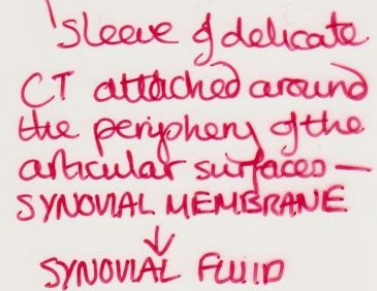 sleeve of delicate
CT attached around
the periphery of the
articular surfaces —
SYNOVIAL MEMBRANE
↓
SYNOVIAL FLUID